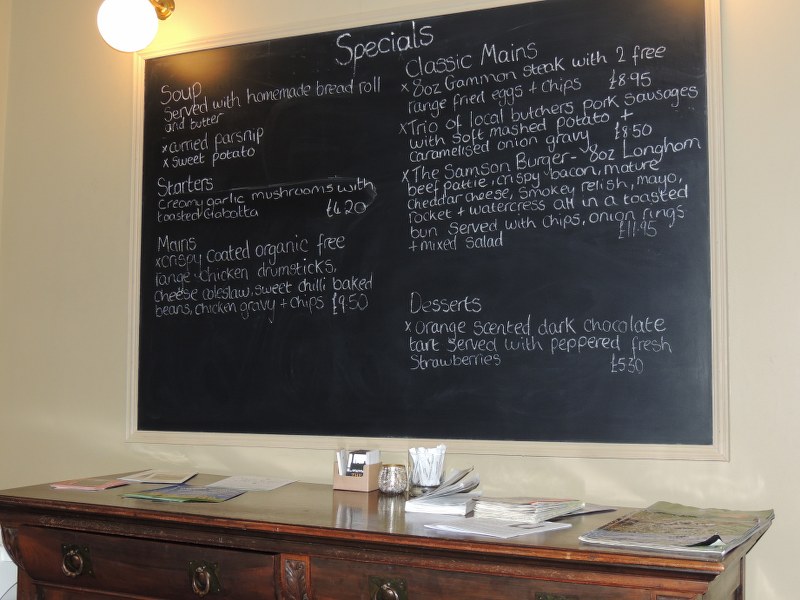 Specials
Soup
Served with homemade bread roll
and butter
x curried parsnip
x sweet potato
Starters
Creamy garlic mushrooms with
toasted ciabatta £4.20
Mains
x crispy coated organic free
range chicken drumsticks,
cheese coleslaw, sweet chilli baked
beans, chicken gravy + chips £9.50
Classic Mains
x 8oz Gammon steak with 2 free
range fried eggs + chips £8.95
x Trio of local butchers pork sausages
with soft mashed potato +
caramelised onion gravy £8.50
x The Samson Burger - 8oz Longhorn
beef pattie, crispy bacon, mature
cheddar cheese, smokey relish, mayo,
rocket + watercress all in a toasted
bun served with chips, onion rings
+ mixed salad £11.95
Desserts
x orange scented dark chocolate
tart served with peppered fresh
strawberries £5.30